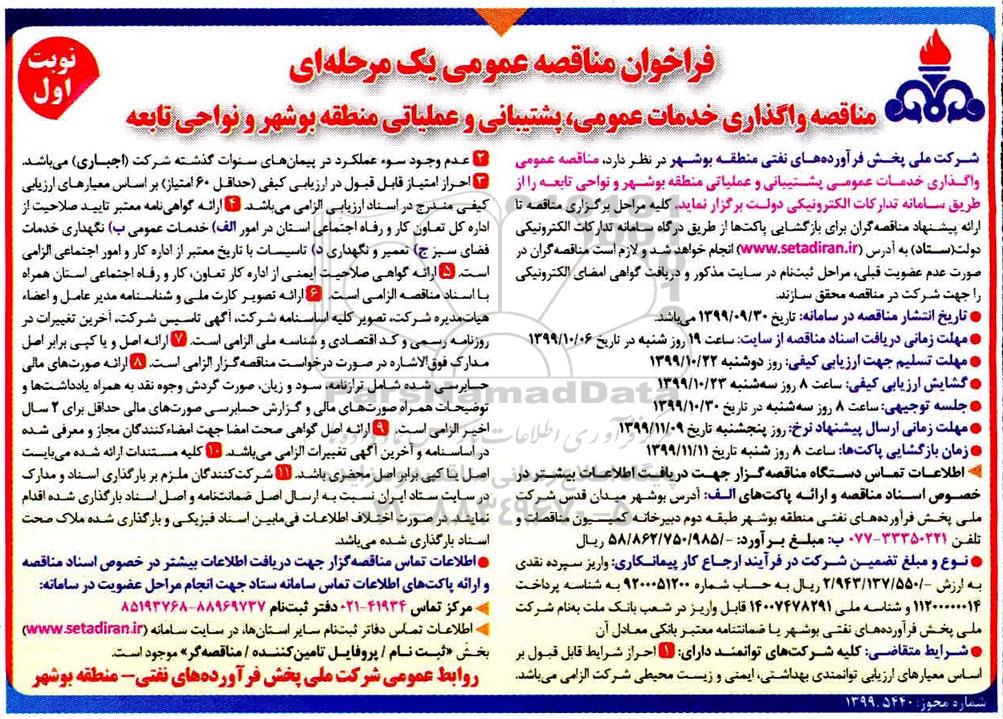 نوبت
اول
فراخوان مناقصه عمومی یک مرحله‌ای
مناقصه واگذاری خدمات عمومی، پشتیبانی و عملیاتی منطقه بوشهر و نواحی تابعه
شرکت ملی پخش فرآورده‌های نفتی منطقه بوشهر در نظر دارد، مناقصه عمومی
واگذاری خدمات عمومی پشتیبانی و عملیاتی منطقه بوشهر و نواحی تابعه را از
طریق سامانه تدارکات الکترونیکی دولت برگزار نماید. کلیه مراحل برگزاری مناقصه تا
ارائه پیشنهاد مناقصه‌گران برای بازگشایی پاکت‌ها از طریق درگاه سامانه تدارکات الکترونیکی
دولت(ستاد) به آدرس (www.setadiran.ir) انجام خواهد شد. و لازم است مناقصه‌گران در
صورت عدم عضویت قبلی، مراحل ثبت‌نام در سایت مذکور و دریافت گواهی امضای الکترونیکی
را جهت شرکت در مناقصه محقق سازند.
● تاریخ انتشار مناقصه در سامانه: تاریخ ۱۳۹۹/۰۹/۳۰ می‌باشد.
● مهلت زمانی دریافت اسناد مناقصه از سایت: ساعت ۱۹ روز شنبه در تاریخ ۱۳۹۹/۱۰/۰۶
● مهلت تسلیم جهت ارزیابی کیفی: روز دوشنبه ۱۳۹۹/۱۰/۲۲
● گشایش ارزیابی کیفی: ساعت ۸ روز سه‌شنبه ۱۳۹۹/۱۰/۲۳
● جلسه توجیهی: ساعت ۸ روز سه‌شنبه در تاریخ ۱۳۹۹/۱۰/۳۰
● مهلت زمانی ارسال پیشنهاد نرخ: روز پنجشنبه تاریخ ۱۳۹۹/۱۱/۰۹
● زمان بازگشایی پاکت‌ها: ساعت ۸ روز شنبه تاریخ ۱۳۹۹/۱۱/۱۱
اطلاعات تماس دستگاه مناقصه‌گزار جهت دریافت اطلاعات بیشتر در
خصوص اسناد مناقصه و ارائه پاکت‌های الف: آدرس بوشهر میدان قدس شرکت
ملی پخش فرآورده‌های نفتی منطقه بوشهر طبقه دوم دبیرخانه کمیسیون مناقصات و
تلفن ۳۳۳۵۰۲۲۱-۰۷۷ ب: مبلغ برآورد: -/۵۸/۸۶۲/۷۵۰/۹۸۵ ریال
● نوع و مبلغ تضمین شرکت در فرآیند ارجاع کار پیمانکاری: واریز سپرده نقدی
به ارزش -/۲/۹۴۳/۱۳۷/۵۵۰ ریال به حساب شماره ۹۲۰۰۰۵۱۲۰۰ به شناسه پرداخت
۱۱۲۰۰۰۰۰۰۱۴ و شناسه ملی ۱۴۰۰۷۴۷۸۲۹۱ قابل واریز در شعب بانک ملت به‌نام شرکت
ملی پخش فرآورده‌های نفتی بوشهر یا ضمانتنامه معتبر بانکی معادل آن
● شرایط متقاضی: کلیه شرکت‌های توانمند دارای: ۱ احراز شرایط قابل قبول بر
اساس معیارهای ارزیابی توانمندی بهداشتی، ایمنی و زیست محیطی شرکت الزامی می‌باشد.
۲ عدم وجود سوء عملکرد در پیمان‌های سنوات گذشته شرکت (اجباری) می‌باشد.
۳ احراز امتیاز قابل قبول در ارزیابی کیفی (حداقل ۶۰ امتیاز) بر اساس معیارهای ارزیابی
کیفی مندرج در اسناد ارزیابی الزامی می‌باشد. ۴ ارائه گواهی‌نامه معتبر تایید صلاحیت از
اداره کل تعاون کار و رفاه اجتماعی استان در امور الف) خدمات عمومی ب) نگهداری خدمات
فضای سبز ج) تعمیر و نگهداری د) تاسیسات با تاریخ معتبر از اداره کار و امور اجتماعی الزامی
است. ۵ ارائه گواهی صلاحیت ایمنی از اداره کار تعاون، کار و رفاه اجتماعی استان همراه
با اسناد مناقصه الزامی است. ۶ ارائه تصویر کارت ملی و شناسنامه مدیر عامل و اعضاء
هیات‌مدیره شرکت، تصویر کلیه اساسنامه شرکت، آگهی تاسیس شرکت، آخرین تغییرات در
روزنامه رسمی و کد اقتصادی و شناسه ملی الزامی است. ۷ ارائه اصل و یا کپی برابر اصل
مدارک فوق‌الاشاره در صورت درخواست مناقصه‌گزار الزامی است. ۸ ارائه صورت‌های مالی
حسابرسی شده شامل ترازنامه، سود و زیان، صورت گردش وجوه نقد به همراه یادداشت‌ها و
توضیحات همراه صورت‌های مالی و گزارش حسابرسی صورت‌های مالی حداقل برای ۲ سال
اخیر الزامی است. ۹ ارائه اصل گواهی صحت امضا جهت امضاءکنندگان مجاز و معرفی شده
در اساسنامه و آخرین آگهی تغییرات الزامی می‌باشد. ۱۰ کلیه مستندات ارائه شده می‌بایست
اصل یا کپی برابر اصل محاضری باشد. ۱۱ شرکت‌کنندگان ملزم بر بارگذاری اسناد و مدارک
در سایت ستاد ایران نسبت به ارسال اصل ضمانتنامه و اصل اسناد بارگذاری شده اقدام
نمایند. در صورت اختلاف اطلاعات فی‌مابین اسناد فیزیکی و بارگذاری شده ملاک صحت
اسناد بارگذاری شده می‌باشد.
● اطلاعات تماس مناقصه‌گزار جهت دریافت اطلاعات بیشتر در خصوص اسناد مناقصه
و ارائه پاکت‌های اطلاعات تماس سامانه ستاد جهت انجام مراحل عضویت در سامانه:
مرکز تماس ۴۱۹۳۴-۰۲۱ دفتر ثبت‌نام ۸۸۹۶۹۷۳۷-۸۵۱۹۳۷۶۸
اطلاعات تماس دفاتر ثبت‌نام سایر استان‌ها، در سایت سامانه (www.setadiran.ir)
بخش «ثبت نام / پروفایل تامین‌کننده / مناقصه‌گر» موجود است.
روابط عمومی شرکت ملی پخش فرآورده‌های نفتی– منطقه بوشهر
شماره مجوز: ۱۳۹۹.۵۴۴۰
ParsNamadData
۰۲۱-۸۸۳۴۹۶۷۰-۵